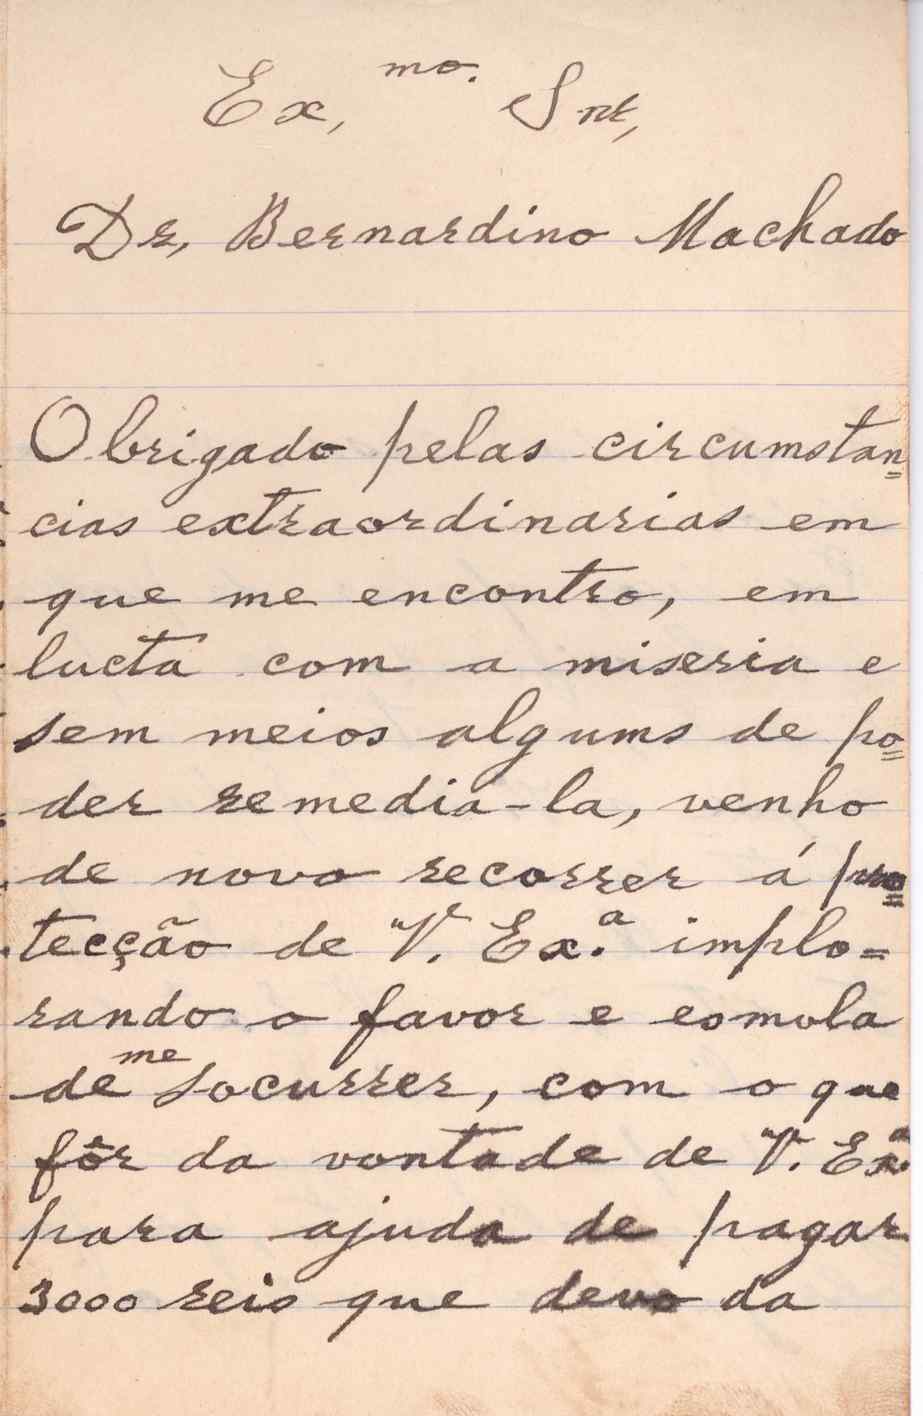 Ex,mo. Snr,
Dr, Bernardino Machado
Obrigado pelas circumstan=
cias extraordinarias em
que me encontro, em
lucta com a miseria e
sem meios alguns de po=
der remedia-la, venho
de novo recorrer á pro=
tecção de V. Ex.a implo=
rando o favor e esmola
de me socurrer, com o que
fôr da vontade de V. Exa.
para ajuda de pagar
3000 reis que devo da